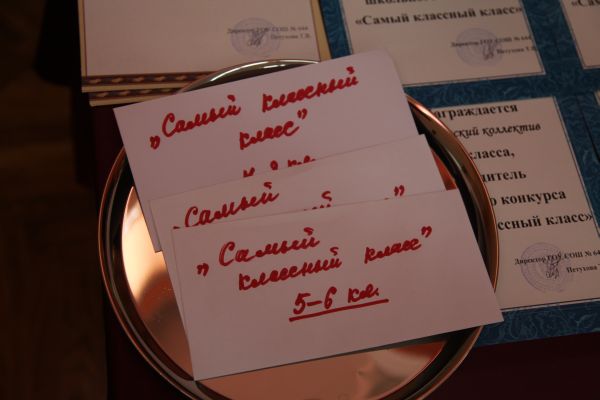 Директор ГОУ СОШ № 644
Петухова Т.В.
«Самый классный класс»
Директор ГОУ СОШ № 644
Петухова Т.В.
«Самый
награждается
коллектив
класса,
конкурса
классный класс»
Директор ГОУ СОШ № 644
Петухова
„Самый классный
класс"
кл.
„Самый
"
„Самый
классный класс"
5-6 кл.